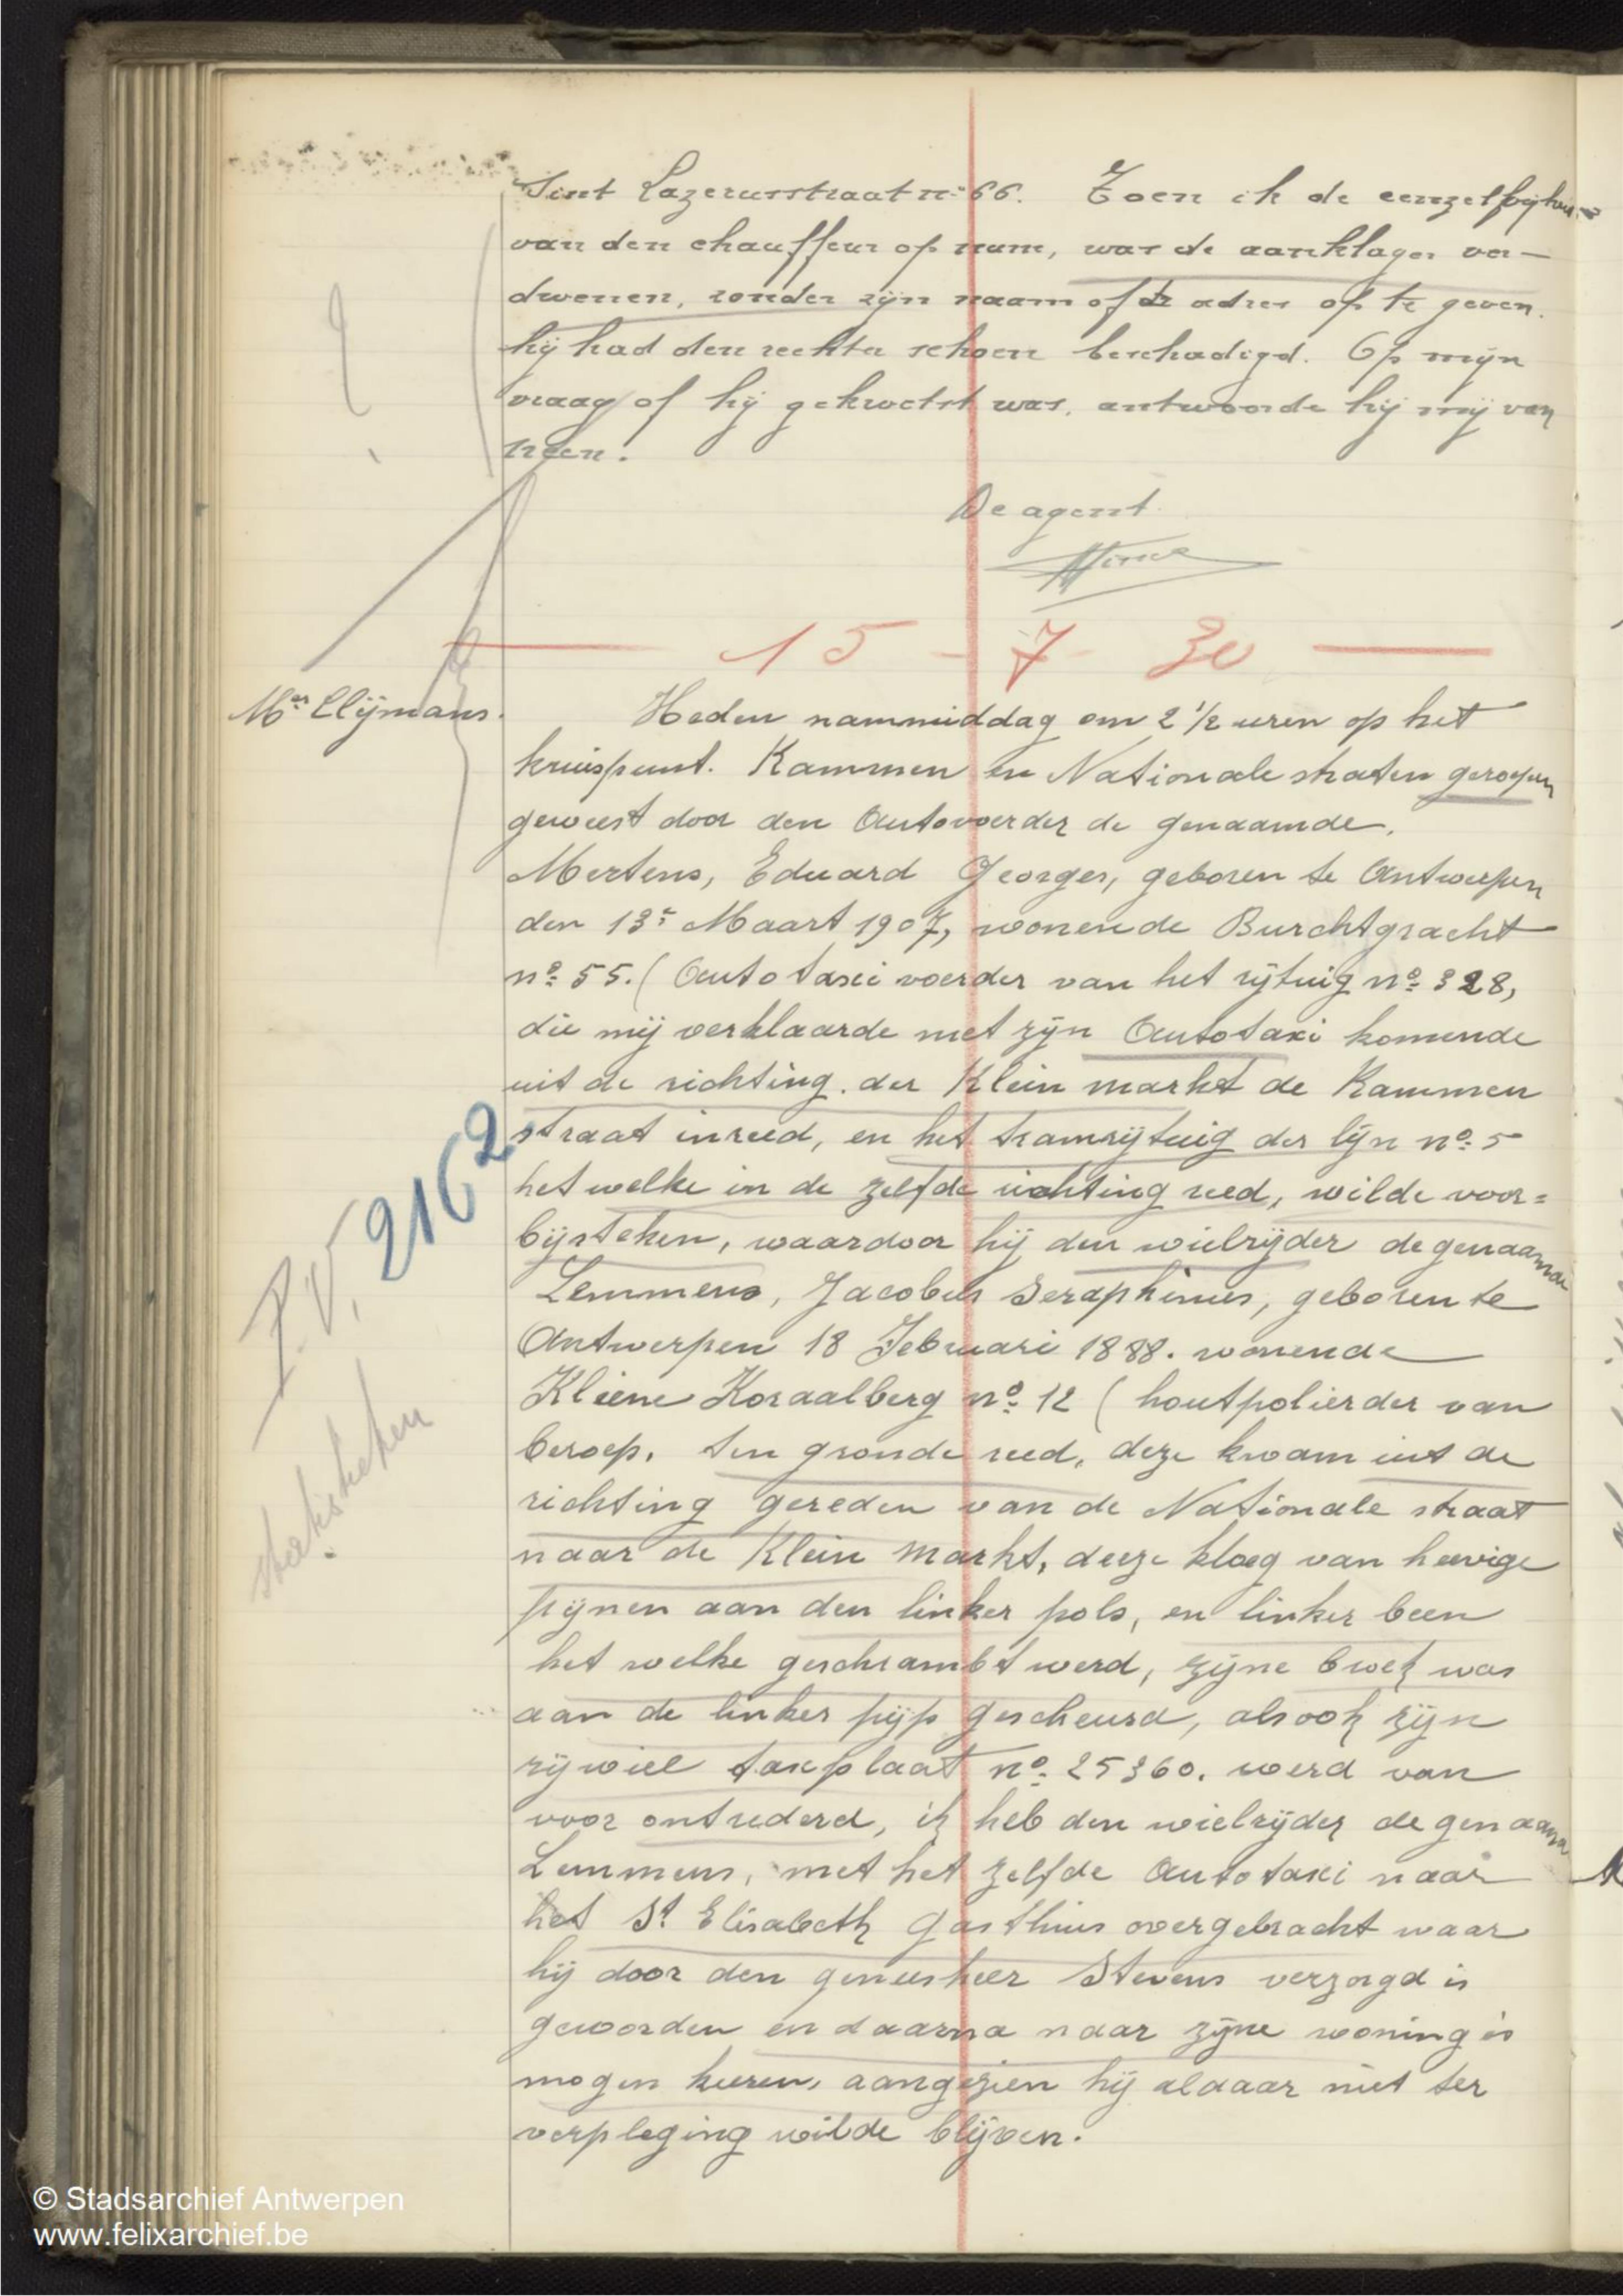 Sint Lazerusstraat no 66. Toen ik de eenzelfvigheid
van den chauffeur op nam, was de aanklager ver-
dwenen, zonder zijn naam of de adres op te geven.
hij had den rechter schoen beschadigd. Op mijn
vraag of hij gekwetst was, antwoorde hij mij van
neen.
De agent
15 - 7 - 30
Mer Clijmans.
Heden nammiddag om 2 1/2 uren op het
kruispunt. Kammen en Nationale straten geroepen
geweest door den Autovoerder de genaamde.
Mertens, Eduard Georges, geboren te Antwerpen
den 13e Maart 1907, wonende Burchtgracht
no 55. (Auto taxi voerder van het rijtuig no 328,
die mij verklaarde met zijn Autotaxi komende
uit de richting. der Klein markt de Kammen
straat inreed, en het tramrijtuig der lijn no 5
het welke in de zelfde richting reed, wilde voor=
bijsteken, waardoor hij den wielrijder de genaamde
Lemmens, Jacobus Seraphinus, geboren te
Antwerpen 18 Februari 1888. wonende
Kliene Koraalberg no 12 (houtpolierder van
beroep. ten gronde reed, deze kwam uit de
richting gereden van de Nationale straat
naar de Klein Markt, deeze kloeg van heevige
pijnen aan den linker pols, en linker been
het welke geschrambt werd, zijne broek was
aan de linker pijp gescheurd, alsook zijn
rijwiel taxplaat no 25360. werd van
voor ontrederd, ik heb den wielrijder de genaamde
Lemmens, met het zelfde Autotaxi naar
het St Elisabeth Gasthuis overgebracht waar
hij door den geneesheer Stevens verzorgd is
geworden en daarna naar zijne woning is
mogen keeren, aangezien hij aldaar niet ter
verpleging wilde blijven.
P.V. 2162
statistieken
© Stadsarchief Antwerpen
www.felixarchief.be